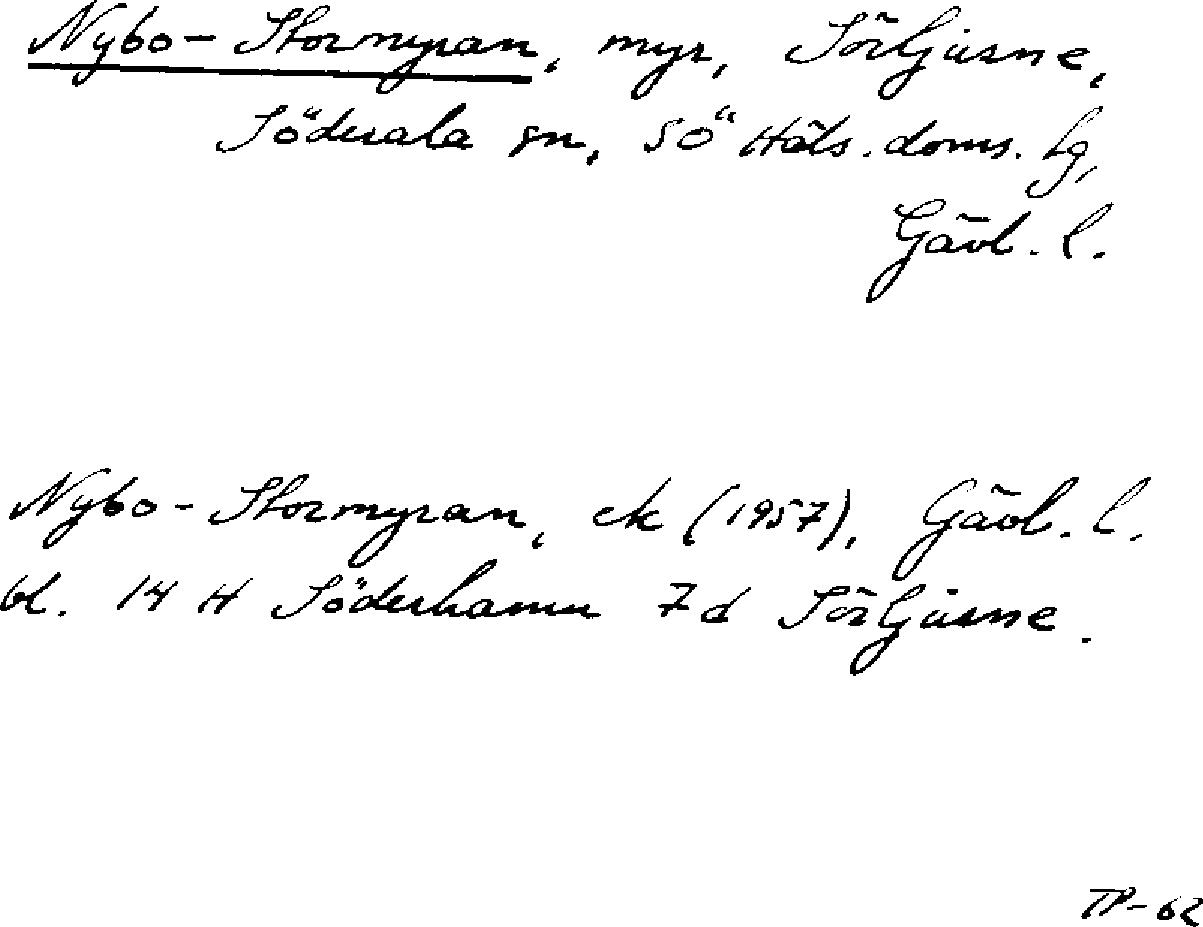 Nybo-Stormyran, myr, Sörljusne,
Söderala sn, SÖ Häls. doms. hg,
Gävl. l.
Nybo-Stormyran, ek (1957), Gävl. l.
bl. 14 H Söderhamn 7d Sörljusne.
TP-62